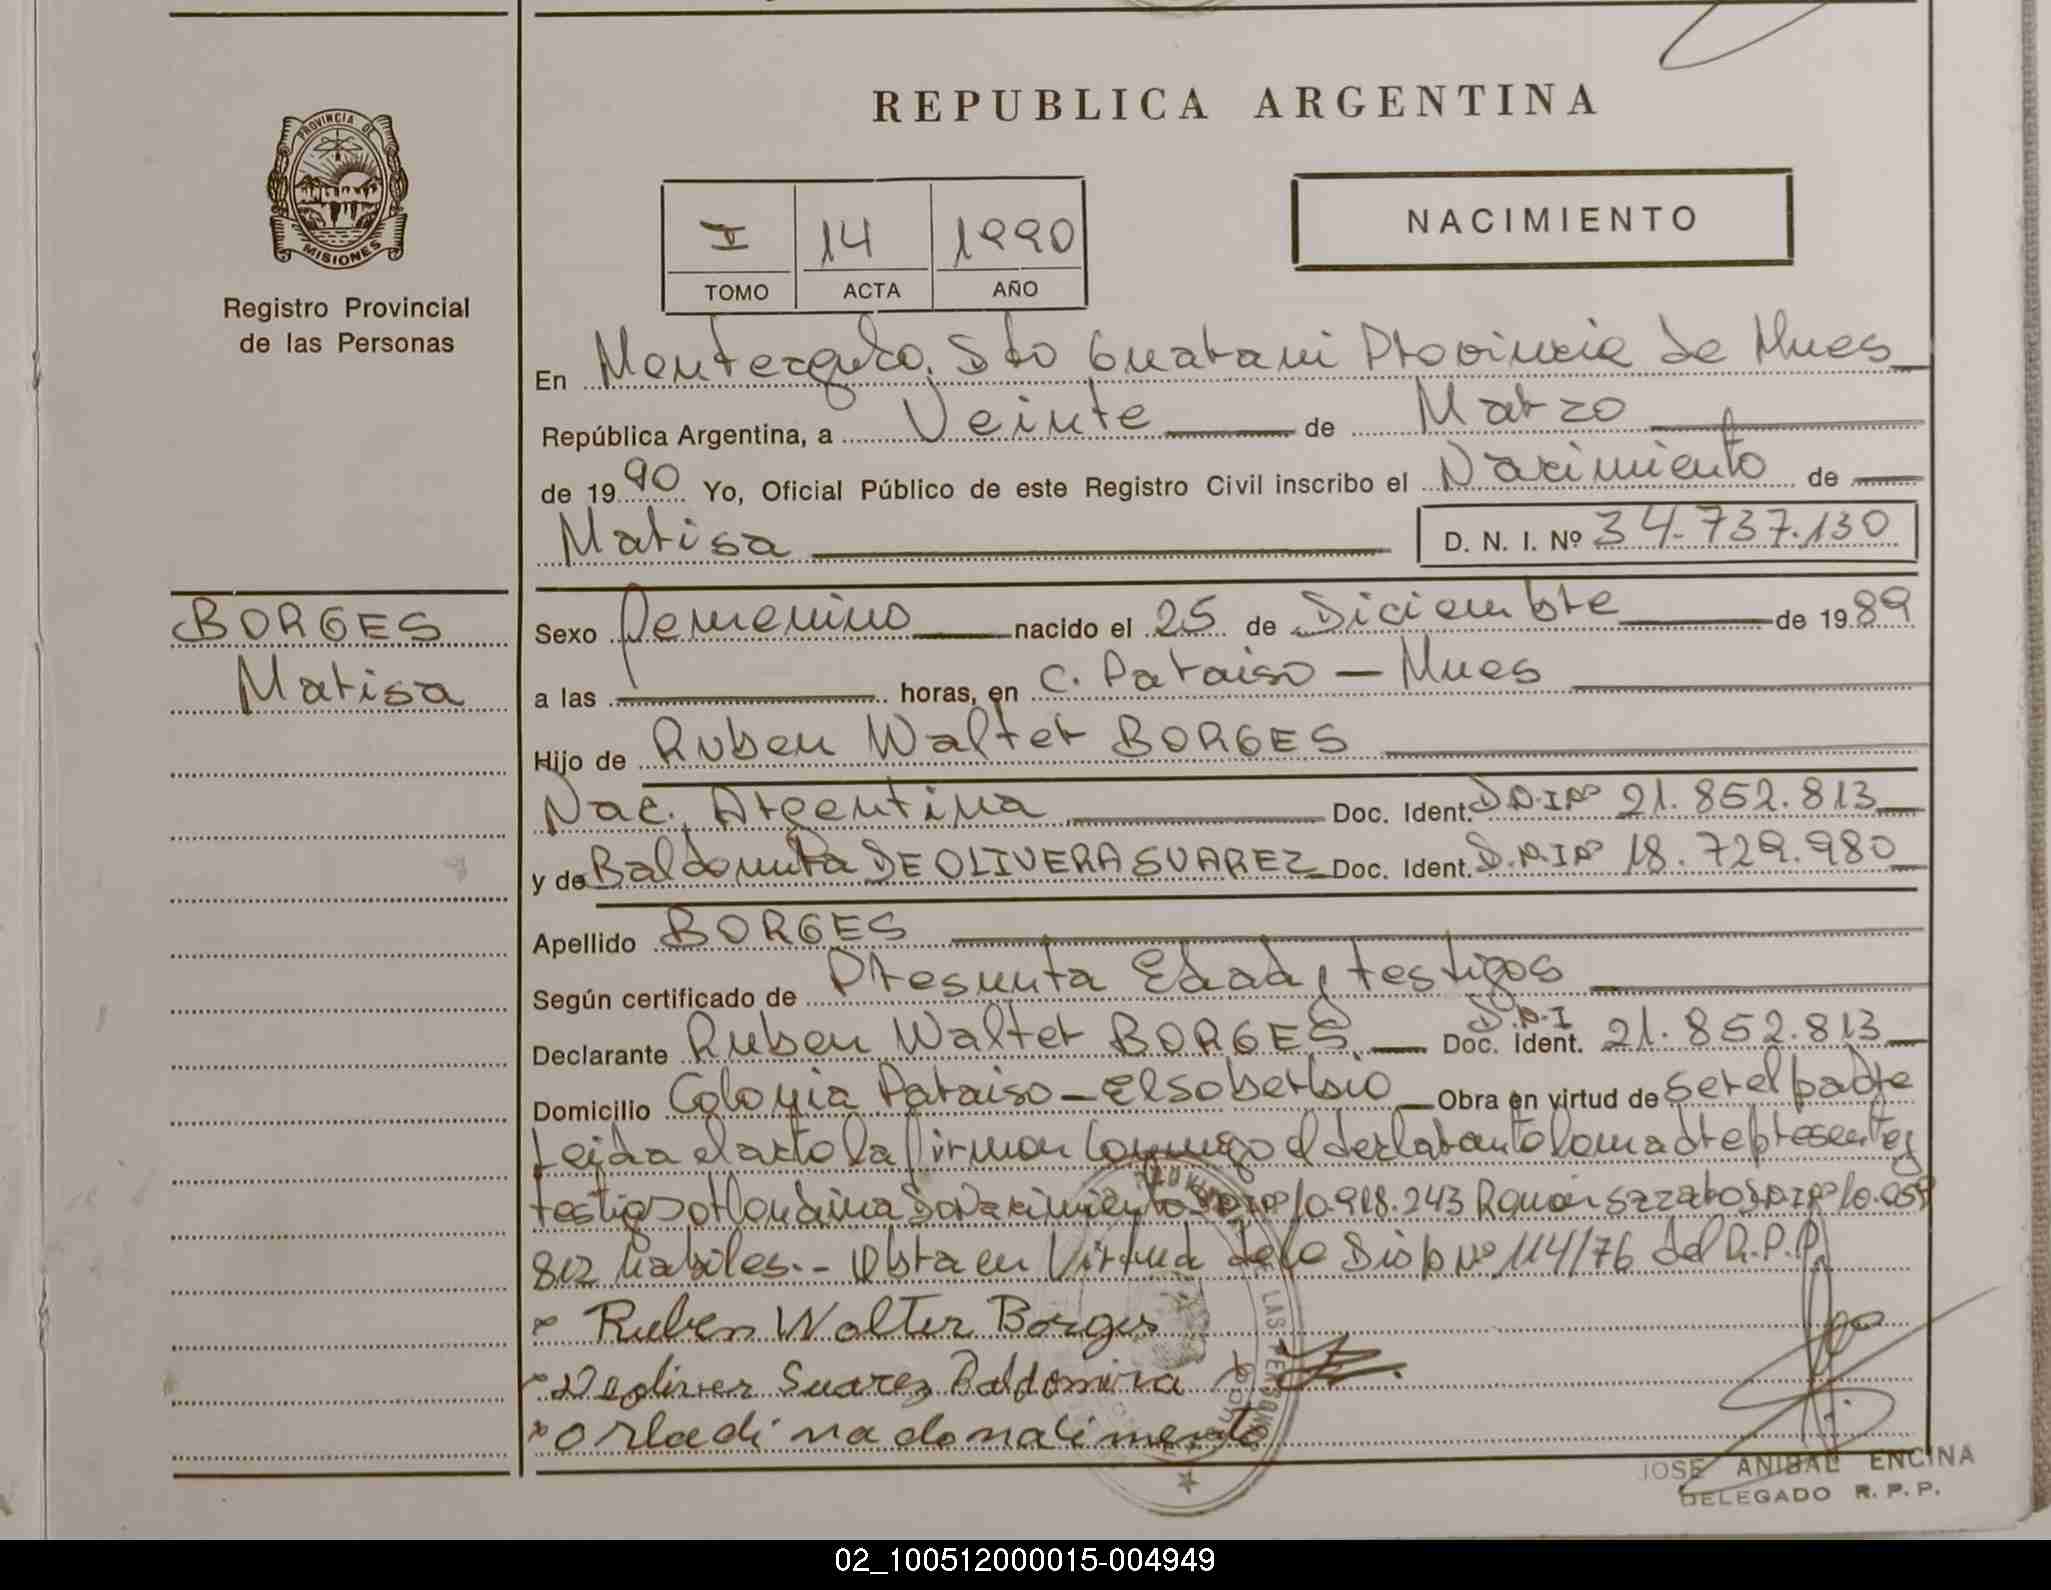 REPUBLICA ARGENTINA
PROVINCIA DE
MISIONES
Registro Provincial
de las Personas
I 14 1990
TOMO ACTA AÑO
NACIMIENTO
En Monteagudo. Dto Guarani Provincia de Mnes
República Argentina, a Veinte de Marzo
de 1990 Yo, Oficial Público de este Registro Civil inscribo el Nacimiento de
Marisa D. N. I. Nº 34.737.130
BORGES
Marisa
Sexo Femenino nacido el 25 de Diciembre de 1989
a las horas, en C. Paraiso - Mnes
Hijo de Ruben Walter BORGES
Nac. Argentina Doc. Ident. D.N.I Nº 21.852.813
y de Baldomira DE OLIVERA SUAREZ Doc. Ident. D.N.I Nº 18.729.980
Apellido BORGES
Según certificado de Presunta Edad y testigos
Declarante Ruben Walter BORGES. Doc. Ident. D.N.I 21.852.813
Domicilio Colonia Paraiso - El soberbio Obra en virtud de ser el padre
Leida el acto la firman Conmigo el declarante la madre presente y
testigos Do Nacimiento D.N.I Nº 10.918.243 Ramon D.N.I Nº 10.959
812 habiles.- Obra en Virtud de la Disp Nº 114/76 del R.P.P.
Ruben Walter Borges
Deoliver Suarez Baldomira
orladina donacimento
LAS PERSONAS
JOSE ANIBAL ENCINA
DELEGADO R. P. P.
02_100512000015-004949